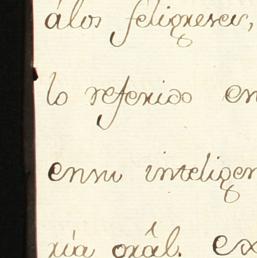 álos feligreses,
lo referido en
ensu inteligen
ria orâl. ex